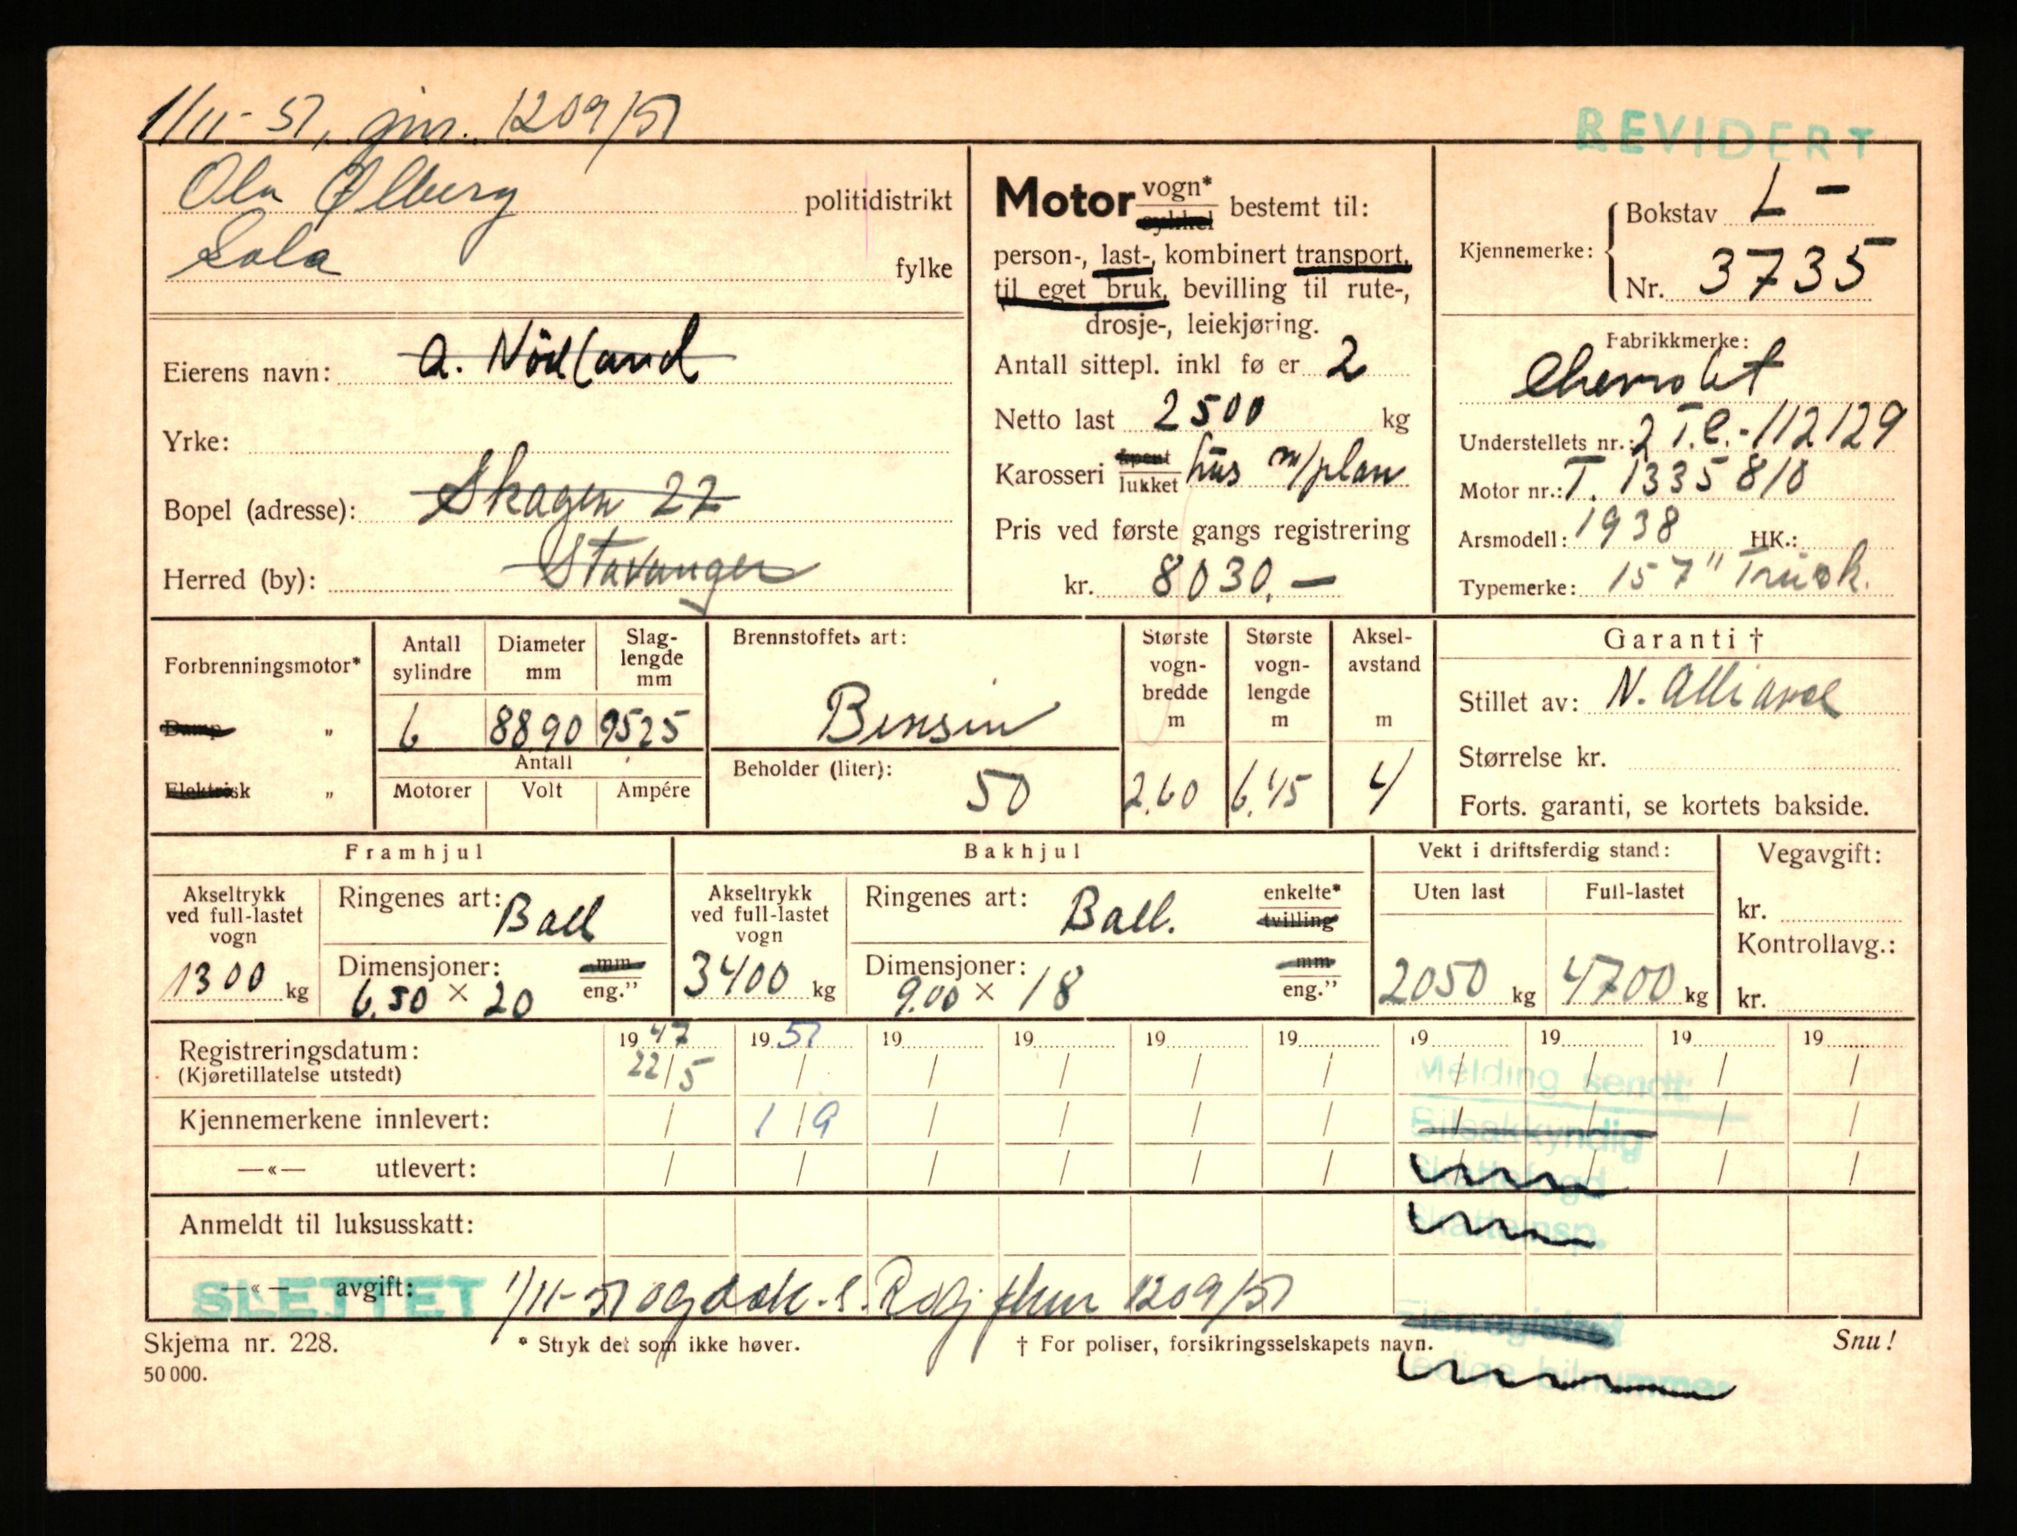 1/11-51, jnr. 1209/51
REVIDERT
Ola Ølberg politidistrikt
Sola fylke
Eierens navn: A. Nödland
Yrke:
Bopel (adresse): Skagen 22
Herred (by): Stavanger
Motor vogn* sykkel bestemt til:
person-, last-, kombinert transport,
til eget bruk, bevilling til rute-,
drosje-, leiekjøring.
Antall sittepl. inkl fø er 2
Netto last 2500 kg
Karosseri åpent lukket hus m/plan
Pris ved første gangs registrering
kr. 8030.—
Kjennemerke: Bokstav L-
Nr. 3735
Fabrikkmerke:
Chevrolet
Understellets nr.: 2 T.C.-112129
Motor nr.: T. 1335810
Arsmodell: 1938 HK.:
Typemerke: 157" Truck.
Forbrenningsmotor*
Damp "
Elektrisk "
Antall sylindre
6
Diameter mm
88.90
Slag-lengde mm
95,25
Antall
Motorer Volt Ampére
Brennstoffets art:
Bensin
Beholder (liter): 50
Største vogn-bredde m
2.60
Største vogn-lengde m
6.45
Aksel-avstand m
4
Garanti †
Stillet av: N. Alliance
Størrelse kr.
Forts. garanti, se kortets bakside.
Framhjul
Akseltrykk ved full-lastet vogn
1300 kg
Ringenes art: Ball
Dimensjoner: mm
6.50 × 20 eng."
Bakhjul
Akseltrykk ved full-lastet vogn
3400 kg
Ringenes art: Ball. enkelte* tvilling
Dimensjoner: mm
9.00 × 18 eng."
Vekt i driftsferdig stand:
Uten last Full-lastet
2050 kg 4700 kg
Vegavgift:
kr.
Kontrollavg.:
kr.
1947 1951 19 19 19 19 19 19 19 19
Registreringsdatum: 22/5 / / / / / / / / /
(Kjøretillatelse utstedt)
Melding sendt:
Kjennemerkene innlevert: / 1/9 / / / / / / / /
Bilsakkyndig
—«— utlevert: / / / / / / / / / /
Skattefogd
Anmeldt til luksusskatt:
Skatteinsp.
—«— avgift:
SLETTET 1/11-51 1209/51
Skjema nr. 228.
* Stryk det som ikke høver.
† For poliser, forsikringsselskapets navn.
Snu!
50 000.
bilnummer